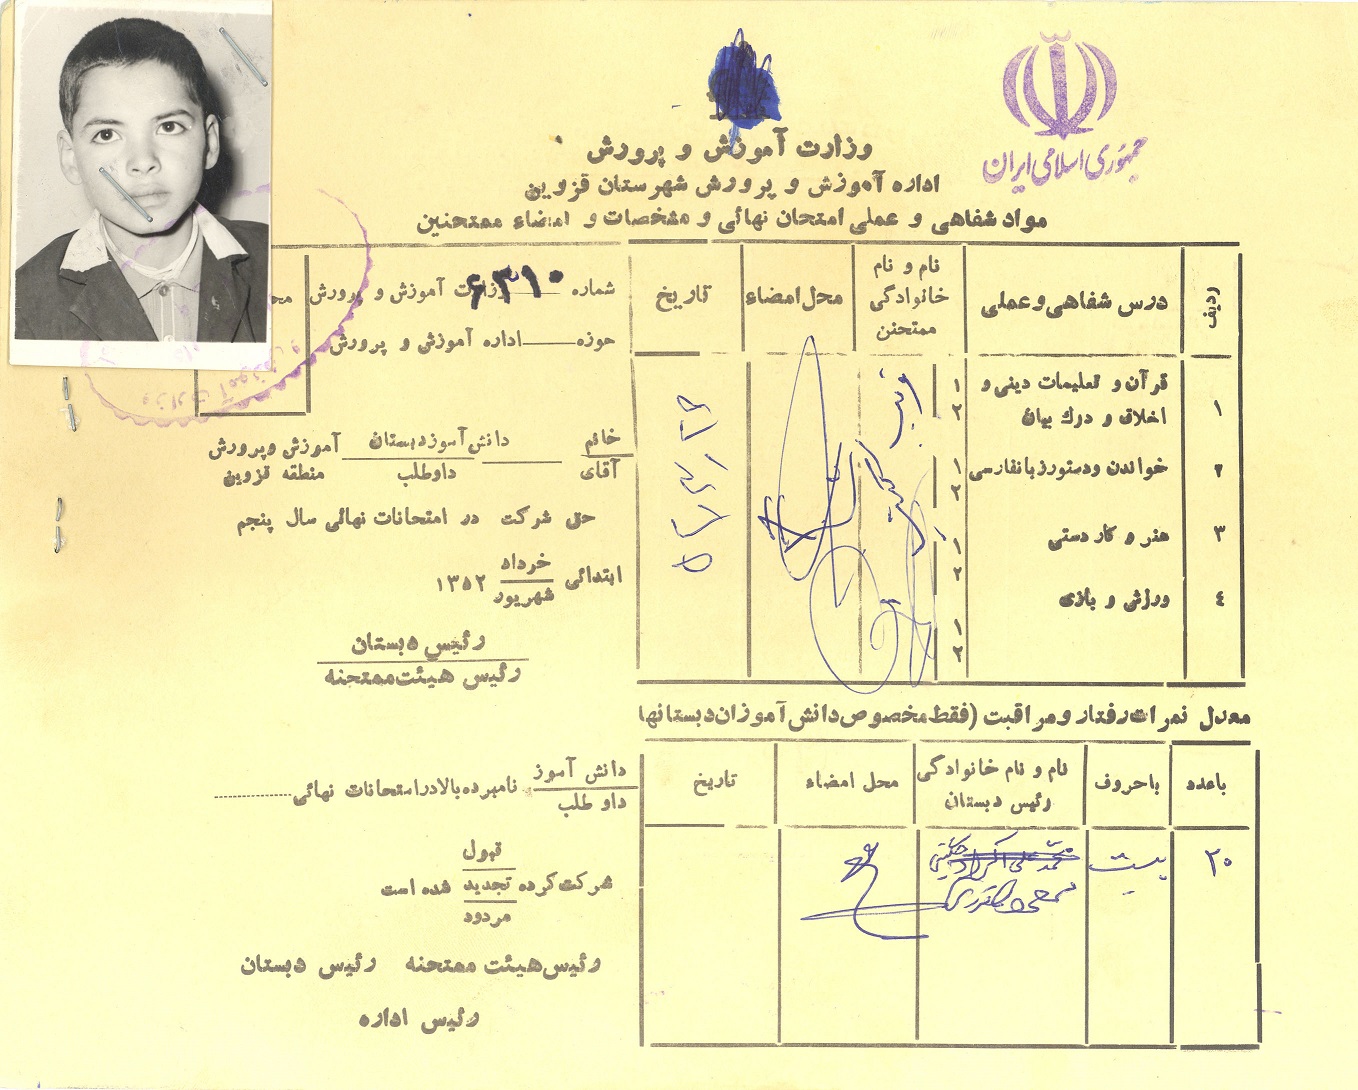 جمهوری اسلامی ایران
وزارت آموزش و پرورش
اداره آموزش و پرورش شهرستان قزوین
مواد شفاهی و عملی امتحان نهائی و مشخصات و امضاء ممتحنین
ردیف
درس شفاهی و عملی
نام و نام
خانوادگی
ممتحنن
محل امضاء
تاریخ
۱
قرآن و تعلیمات دینی و
اخلاق و درك بیان
۱
۲
۲
خواندن و دستور زبان فارسی
۱
۲
۳
هنر و کار دستی
۱
۲
٤
ورزش و بازی
۱
۲
معدل نمرات رفتار و مراقبت (فقط مخصوص دانش آموزان دبستانها
با عدد
با حروف
نام و نام خانوادگی
رئیس دبستان
محل امضاء
تاریخ
۲۰
بیست
شماره ۶۳۱۰ وزارت آموزش و پرورش
حوزه اداره آموزش و پرورش
خانم
آقای
دانش آموز دبستان
داوطلب
آموزش و پرورش
منطقه قزوین
حق شرکت در امتحانات نهائی سال پنجم
ابتدائی خرداد
شهریور ۱۳۵۲
رئیس دبستان
رئیس هیئت ممتحنه
دانش آموز
داو طلب
نامبرده بالا در امتحانات نهائی
قبول
شرکت کرده تجدید شده است
مردود
رئیس هیئت ممتحنه رئیس دبستان
رئیس اداره